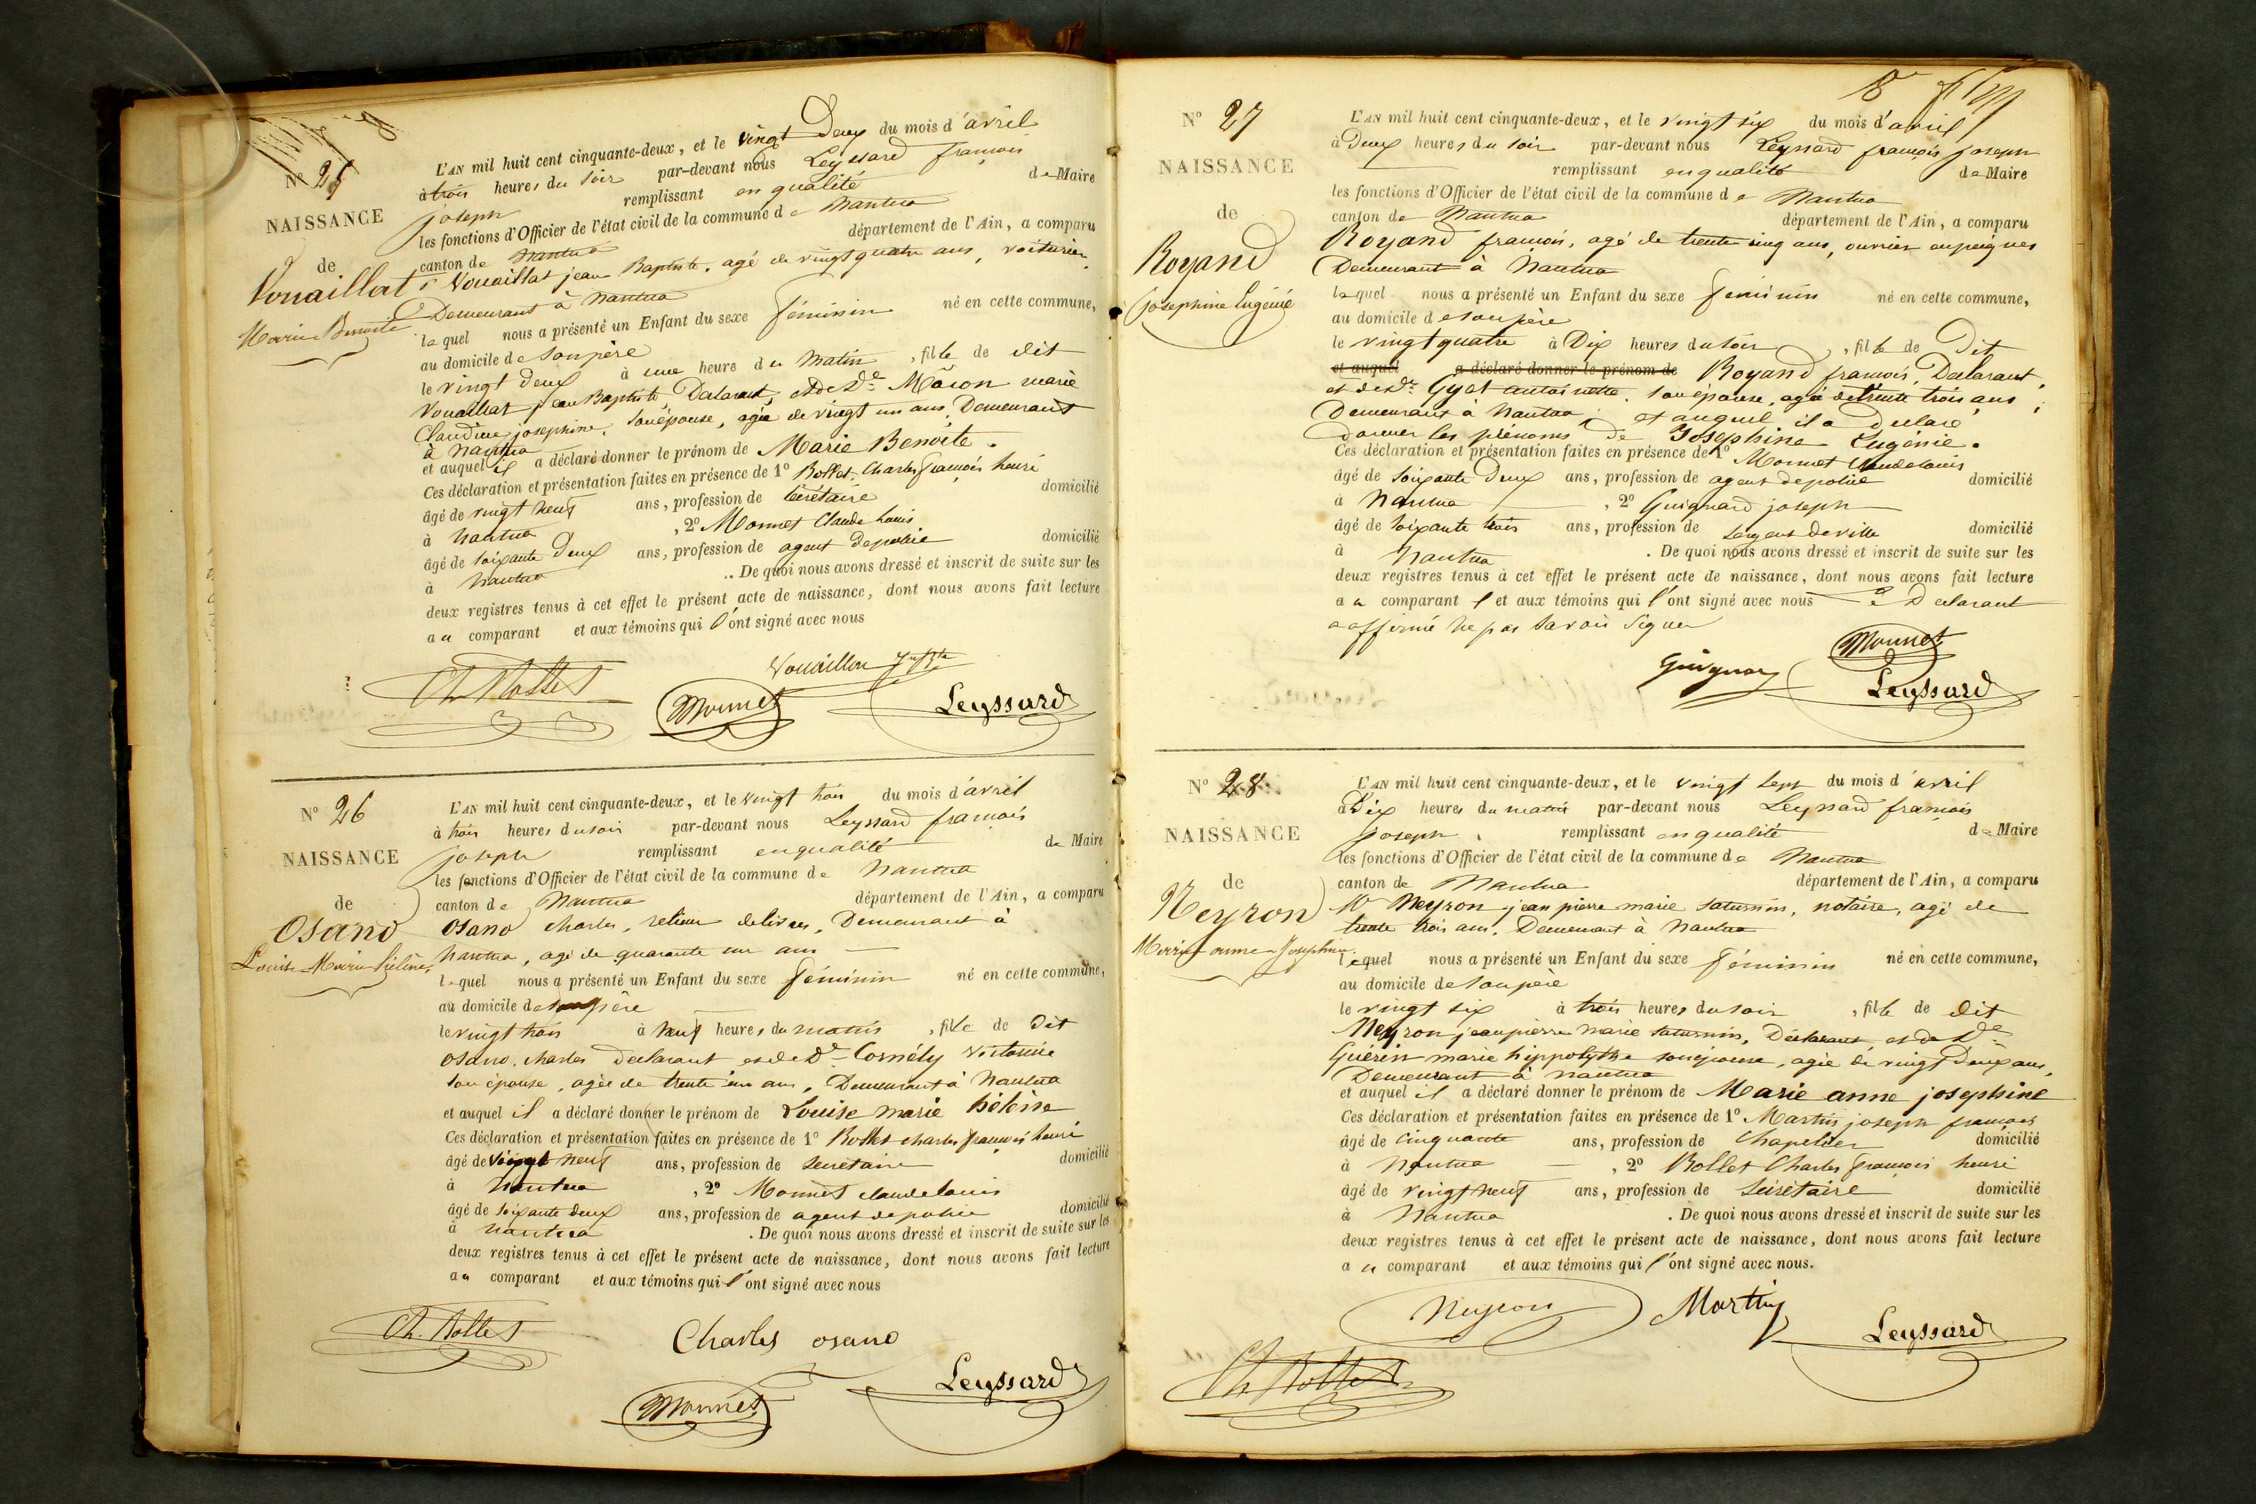 N° 25
NAISSANCE
de
Vouaillat
Marie Benoite
L'AN mil huit cent cinquante-deux, et le vingt Deux du mois d'avril
à trois heures du soir par-devant nous Leyssard françois
joseph remplissant en qualité de Maire
les fonctions d'Officier de l'état civil de la commune de Nantua
canton de Nantua département de l'Ain, a comparu
Vouaillat jean Baptiste, agé de vingt quatre ans, voiturier,
Demeurant à Nantua
lequel nous a présenté un Enfant du sexe féminin né en cette commune,
au domicile de son père
le vingt deux à une heure du matin, fille de dit
Vouaillat jean Baptiste, Déclarant, et de De Mâcon marie
Claudine josephine, son épouse, agée de vingt un ans, Demeurant
à Nantua
et auquel il a déclaré donner le prénom de Marie Benoite.
Ces déclaration et présentation faites en présence de 1° Bollet, Charles françois henri
âgé de vingt neuf ans, profession de secrétaire domicilié
à Nantua, 2° Monnet Claude Louis
âgé de soixante Deux ans, profession de agent de police domicilié
à Nantua. De quoi nous avons dressé et inscrit de suite sur les
deux registres tenus à cet effet le présent acte de naissance, dont nous avons fait lecture
au comparant et aux témoins qui l'ont signé avec nous
Ch Bollet
Monnet
Leyssard
N° 26
NAISSANCE
de
Osano
Louise Marie
L'AN mil huit cent cinquante-deux, et le vingt trois du mois d'avril
à trois heures du soir par-devant nous Leyssard françois
joseph remplissant en qualité de Maire
les fonctions d'Officier de l'état civil de la commune de Nantua
canton de Nantua département de l'Ain, a comparu
Osano Charles, relieur de livres, Demeurant à
Nantua, agé de quarante un ans
lequel nous a présenté un Enfant du sexe féminin né en cette commune,
au domicile de son père
le vingt trois à neuf heures du matin, fille de dit
Osano, charles déclarant et de De Cornély victorine
son épouse, agée de trente un ans, Demeurant à Nantua
et auquel il a déclaré donner le prénom de Louise marie
Ces déclaration et présentation faites en présence de 1° Bollet charles françois henri
âgé de vingt neuf ans, profession de secrétaire domicilié
à Nantua, 2° Monnet claude louis
âgé de soixante deux ans, profession de agent de police domicilié
à Nantua. De quoi nous avons dressé et inscrit de suite sur les
deux registres tenus à cet effet le présent acte de naissance, dont nous avons fait lecture
au comparant et aux témoins qui l'ont signé avec nous
Ch. Bollet
Charles osano
Monnet
Leyssard
N° 27
NAISSANCE
de
Royand
Josephine Eugénie
L'AN mil huit cent cinquante-deux, et le vingt six du mois d'avril
à Deux heures du soir par-devant nous Leyssard françois joseph
remplissant en qualité de Maire
les fonctions d'Officier de l'état civil de la commune de Nantua
canton de Nantua département de l'Ain, a comparu
Royand françois, agé de trente cinq ans, ouvrier en peignes
Demeurant à Nantua
lequel nous a présenté un Enfant du sexe féminin né en cette commune,
au domicile de son père
le vingt quatre à Dix heures du soir, fille de Dit
et auquel a déclaré donner le prénom de Royand françois, Déclarant,
et de De Gyot antoinette, son épouse, agée de trente trois ans,
Demeurant à Nantua; et auquel il a déclaré
donner les prénoms de Josephine Eugénie.
Ces déclaration et présentation faites en présence de 1° Monnet Claude louis
âgé de soixante Deux ans, profession de agent de police domicilié
à Nantua, 2° Guignard joseph
âgé de soixante trois ans, profession de sergent de ville domicilié
à Nantua. De quoi nous avons dressé et inscrit de suite sur les
deux registres tenus à cet effet le présent acte de naissance, dont nous avons fait lecture
au comparant et aux témoins qui l'ont signé avec nous Le Déclarant
a affirmé ne pas savoir signer
Monnet
Leyssard
N° 28
NAISSANCE
de
Neyron
Marie anne Josephine
L'AN mil huit cent cinquante-deux, et le vingt sept du mois d'avril
à Dix heures du matin par-devant nous Leyssard françois
joseph, remplissant en qualité de Maire
les fonctions d'Officier de l'état civil de la commune de Nantua
canton de Nantua département de l'Ain, a comparu
Mr Neyron jean pierre marie saturnin, notaire, agé de
trente trois ans, Demeurant à Nantua
lequel nous a présenté un Enfant du sexe féminin né en cette commune,
au domicile de son père
le vingt six à trois heures du soir, fille de dit
Neyron jean pierre marie saturnin, Déclarant, et de De
Guérin marie hippolythe son épouse, agée de vingt Deux ans,
Demeurant à Nantua
et auquel il a déclaré donner le prénom de Marie anne josephine
Ces déclaration et présentation faites en présence de 1° Martin joseph françois
âgé de cinquante ans, profession de Chapelier domicilié
à Nantua, 2° Bollet Charles françois henri
âgé de vingt neuf ans, profession de Secrétaire domicilié
à Nantua. De quoi nous avons dressé et inscrit de suite sur les
deux registres tenus à cet effet le présent acte de naissance, dont nous avons fait lecture
au comparant et aux témoins qui l'ont signé avec nous.
Neyron
Martin
Leyssard
Ch Bollet